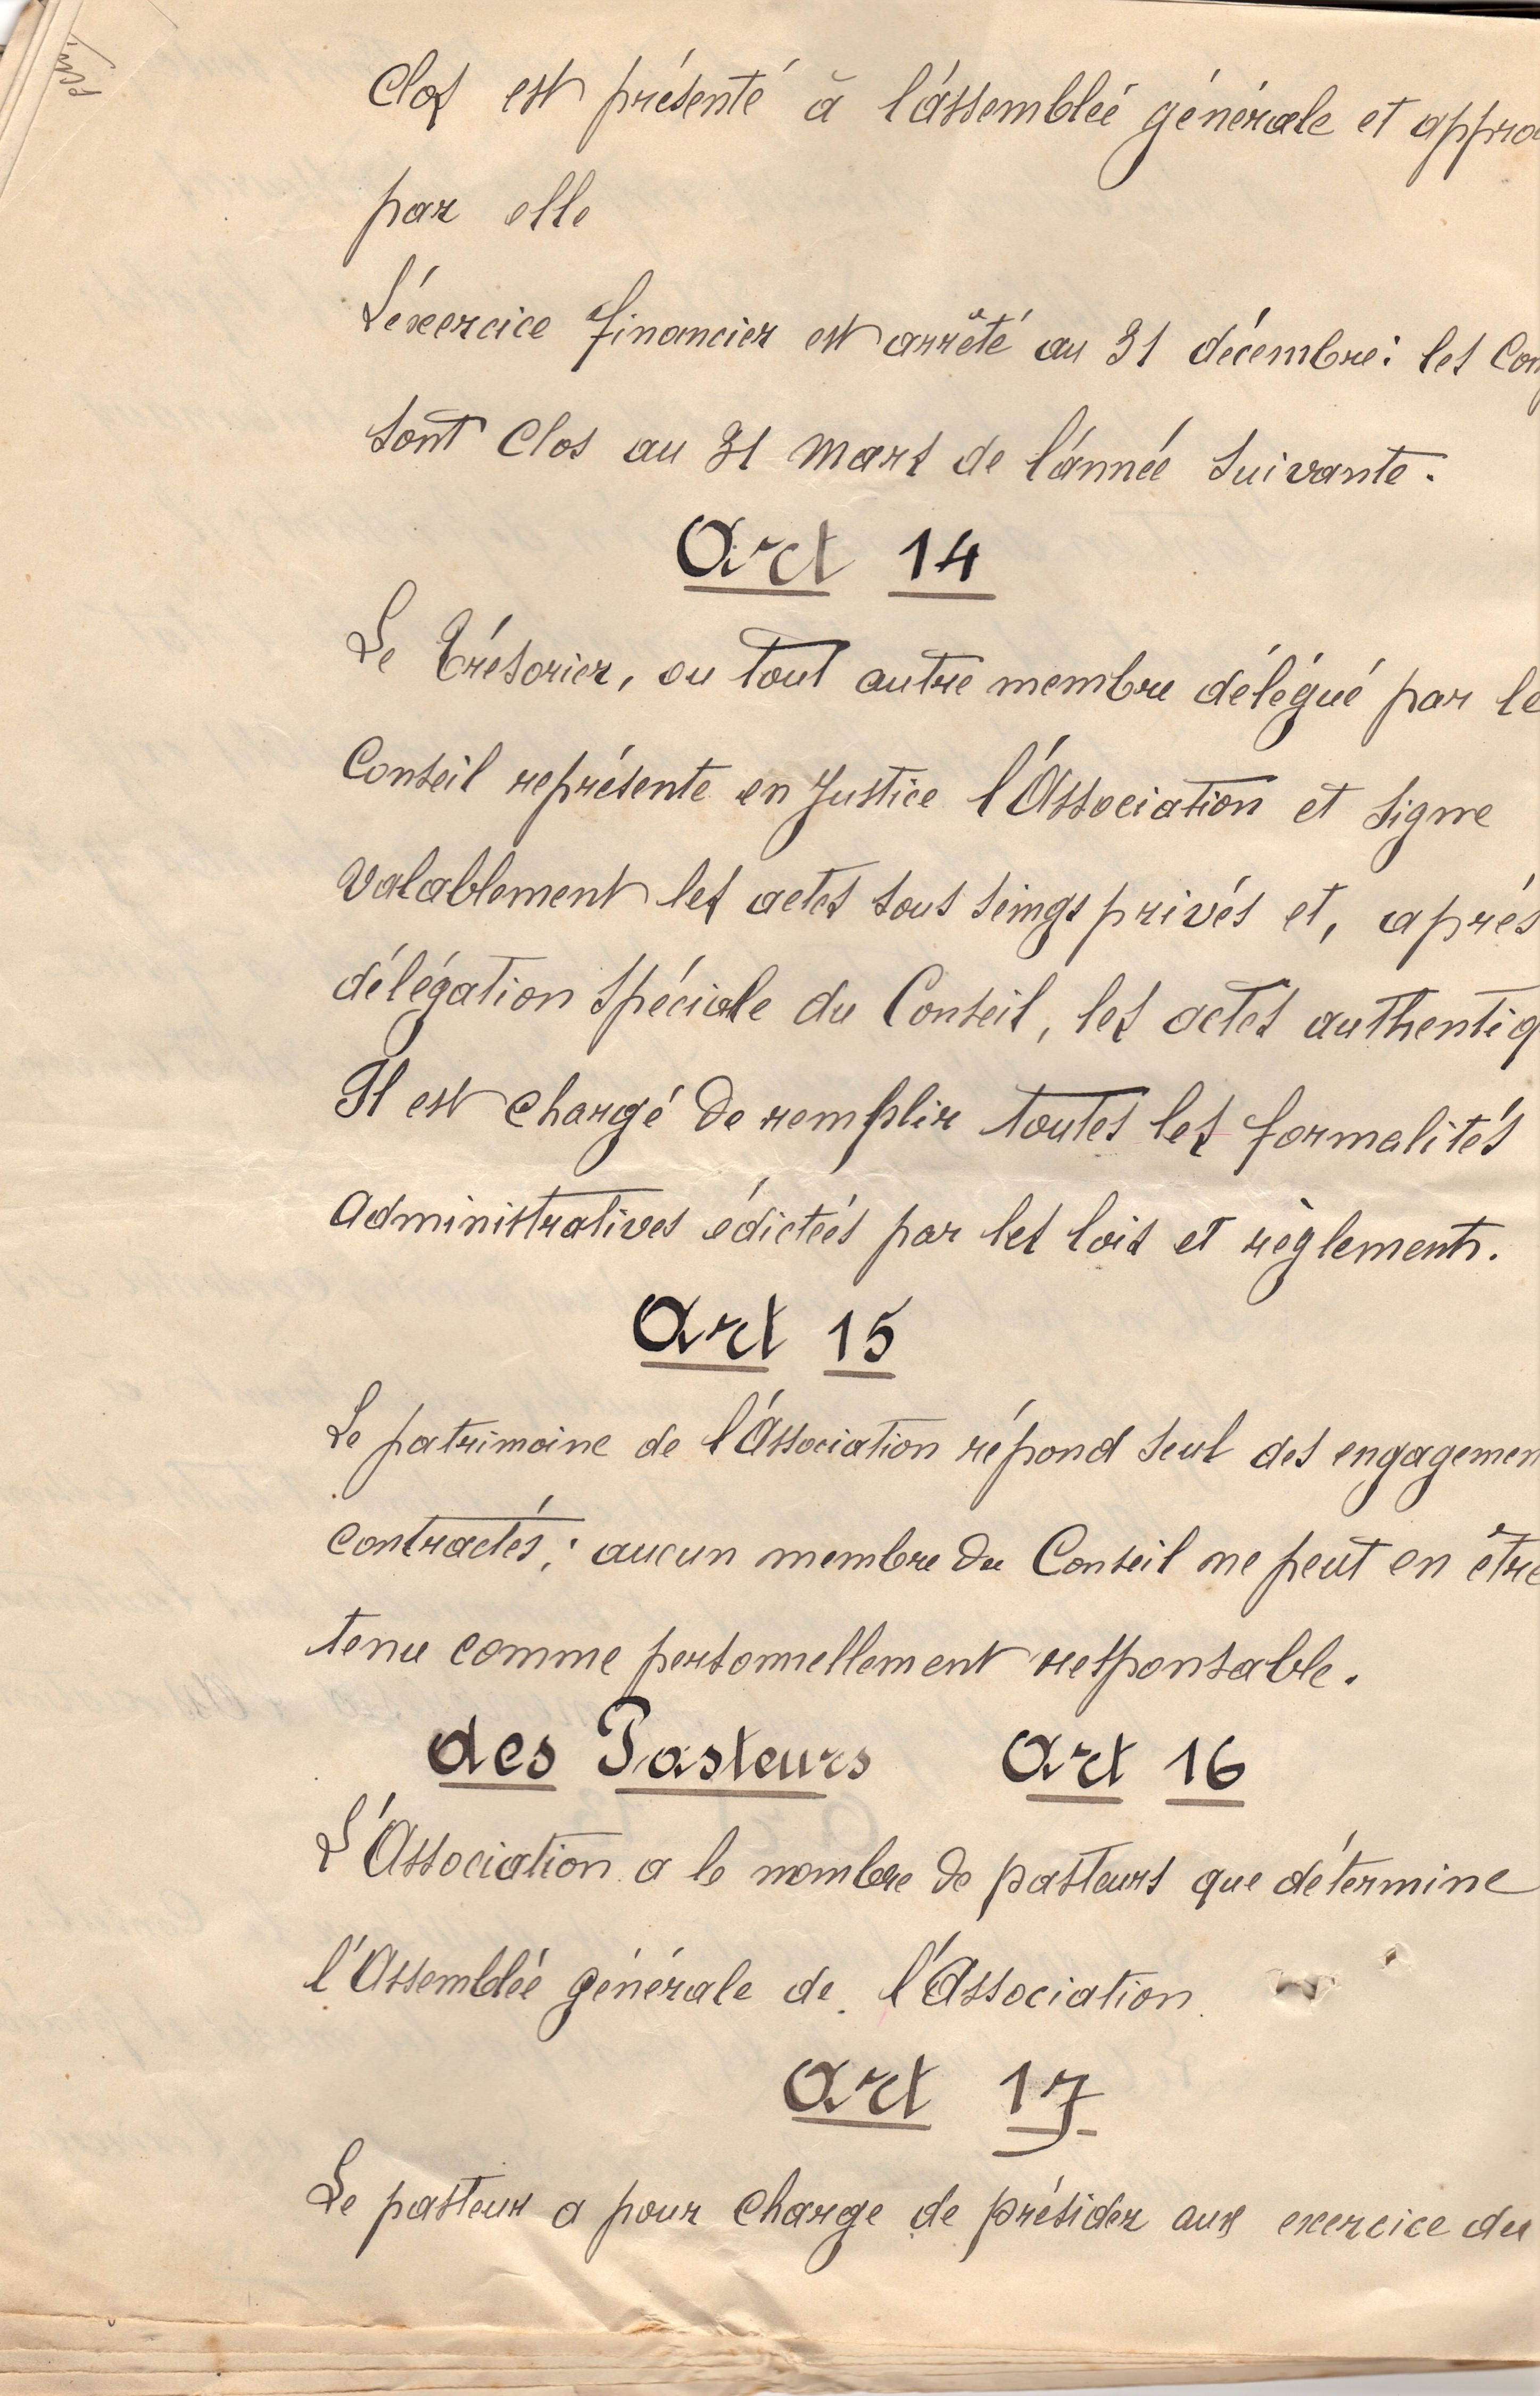 Clos est présenté à l'assemblée générale et appro
par elle
L'éxercice financier est arrêté au 31 décembre: les Com
sont Clos au 31 Mars de l'année suivante.
Art 14
Le Trésorier, ou tout autre membre délégué par le
Conseil représente en Justice l'Association et signe
valablement les actes sous seings privés et, aprés
délégation spéciale du Conseil, les actes authentiq
Il est chargé de remplir toutes les formalités
administratives édictées par les lois et règlements.
Art 15
Le patrimoine de l'Association répond seul des engagemen
contractés; aucun membre du Conseil ne peut en être
tenu comme personnellement responsable.
des Pasteurs Art 16
L'Association a le nombre de pasteurs que détermine
l'Assemblée générale de l'Association.
Art 17
Le pasteur a pour charge de présider aux exercice du